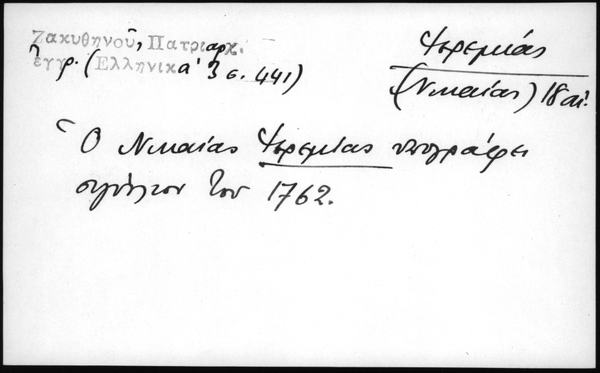 Ζακυθηνοῦ, Πατριαρχ.
ἔγγρ. (Ἑλληνικα' 3 σ. 441)
Ἱερεμίας
(Νικαίας) 18 αἰ.
Ὁ Νικαίας Ἱερεμίας υπογράφει
σιγίλλιον του 1762.